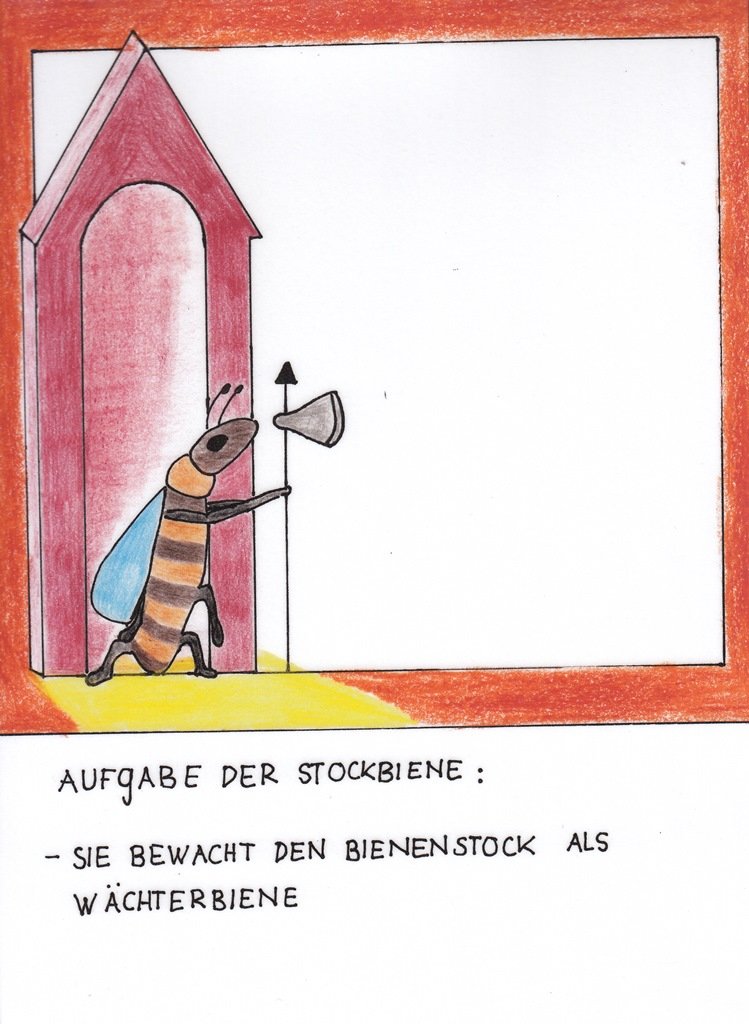 AUFGABE DER STOCKBIENE:
- SIE BEWACHT DEN BIENENSTOCK ALS
WÄCHTERBIENE